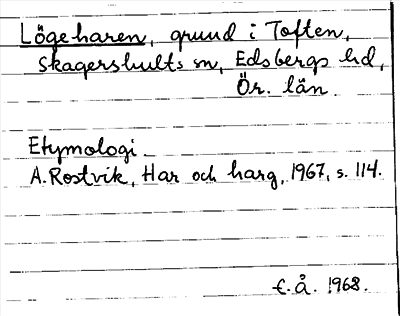 Lögeharen, grund i Toften,
Skagershults sn, Edsbergs hd,
Ör. län.
Etymologi
A. Rostvik, Har och harg, 1967, s. 114.
E.Å. 1968.